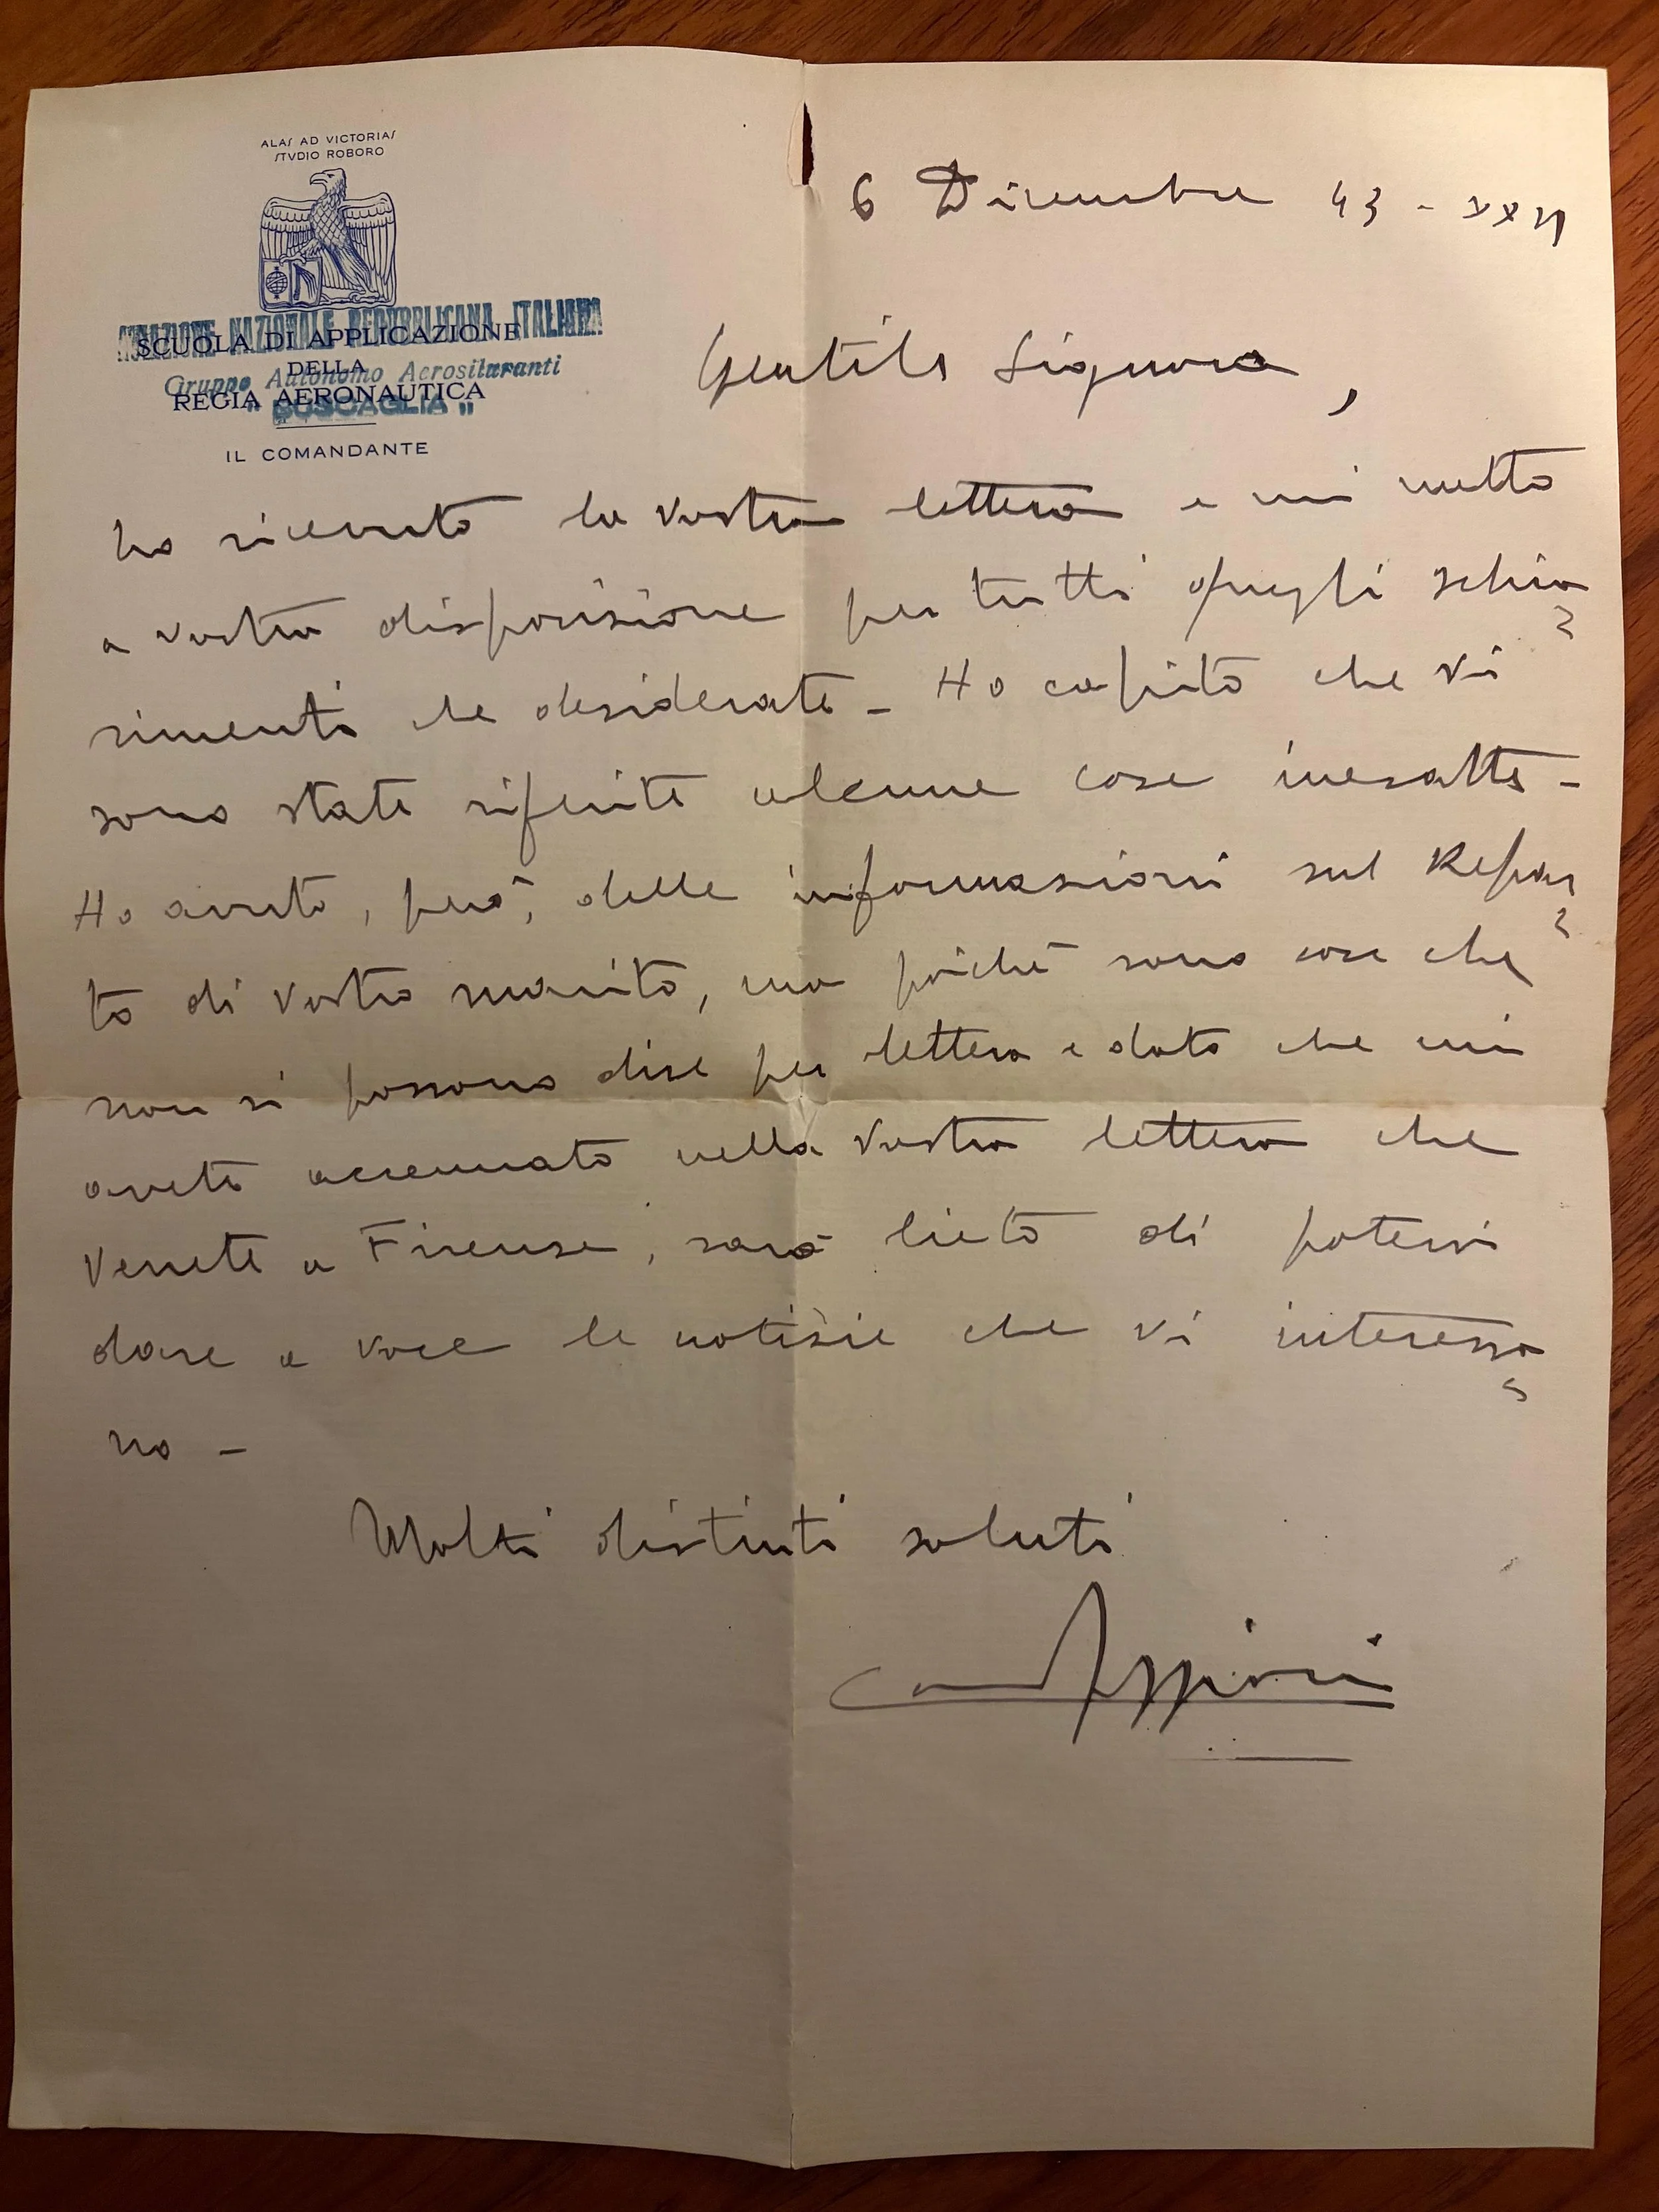 ALAS AD VICTORIAS
STVDIO ROBORO
AVIAZIONE NAZIONALE REPUBBLICANA ITALIANA
SCUOLA DI APPLICAZIONE
DELLA
Gruppo Autonomo Aerosiluranti
REGIA AERONAUTICA
"BUSCAGLIA"
IL COMANDANTE
6 Dicembre 43 - XXII
Gentile Signora,
ho ricevuto la vostra lettera e mi metto
a vostra disposizione per tutti quegli schia=
rimenti che desiderate - Ho capito che vi
sono state riferite alcune cose inesatte -
Ho avuto, però, delle informazioni sul Repar=
to di vostro marito, ma poichè sono cose che
non si possono dire per lettera e dato che mi
avete accennato nella vostra lettera che
venite a Firenze, sarò lieto di potervi
dare a voce le notizie che vi interessa=
no -
Molti distinti saluti